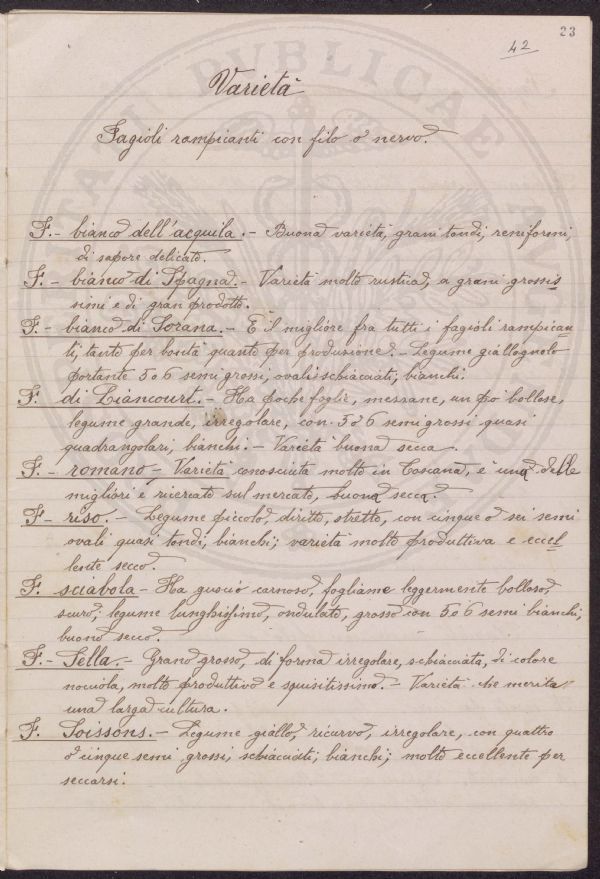 23
42
Varietà
Fagioli rampicanti con filo o nervo.
F. - bianco dell'acquila. - Buona varietà, grani tondi, reniformi,
di sapore delicato.
F. - bianco di Spagna. - Varietà molto rustica, a grani grossis
simi e di gran prodotto.
F. - bianco di Sorana. - È il migliore fra tutti i fagioli rampican
ti, tanto per bontà quanto per produzione. - Legume giallognolo
portante 5 o 6 semi grossi, ovali schiacciati, bianchi.
F. di Liancourt. - Ha poche foglie, mezzane, un po' bollose,
legume grande, irregolare, con 5 o 6 semi grossi quasi
quadrangolari, bianchi. - Varietà buona secca.
F. - romano - Varietà conosciuta molto in Toscana, è una delle
migliori e ricercate sul mercato, buona secca.
F - riso. - Legume piccolo, diritto, stretto, con cinque o sei semi
ovali quasi tondi, bianchi; varietà molto produttiva e eccel
lente secco.
F. sciabola - Ha guscio carnoso, fogliame leggermente bolloso,
scuro, legume lunghissimo, ondulato, grosso con 5 o 6 semi bianchi,
buono secco.
F. - Sella. - Grano grosso, di forma irregolare, schiacciata, di colore
nocciola, molto produttivo e squisitissimo. - Varietà che merita
una larga cultura.
F. Soissons. - Legume giallo, ricurvo, irregolare, con quattro
o cinque semi grossi, schiacciati, bianchi; molto eccellente per
seccarsi.